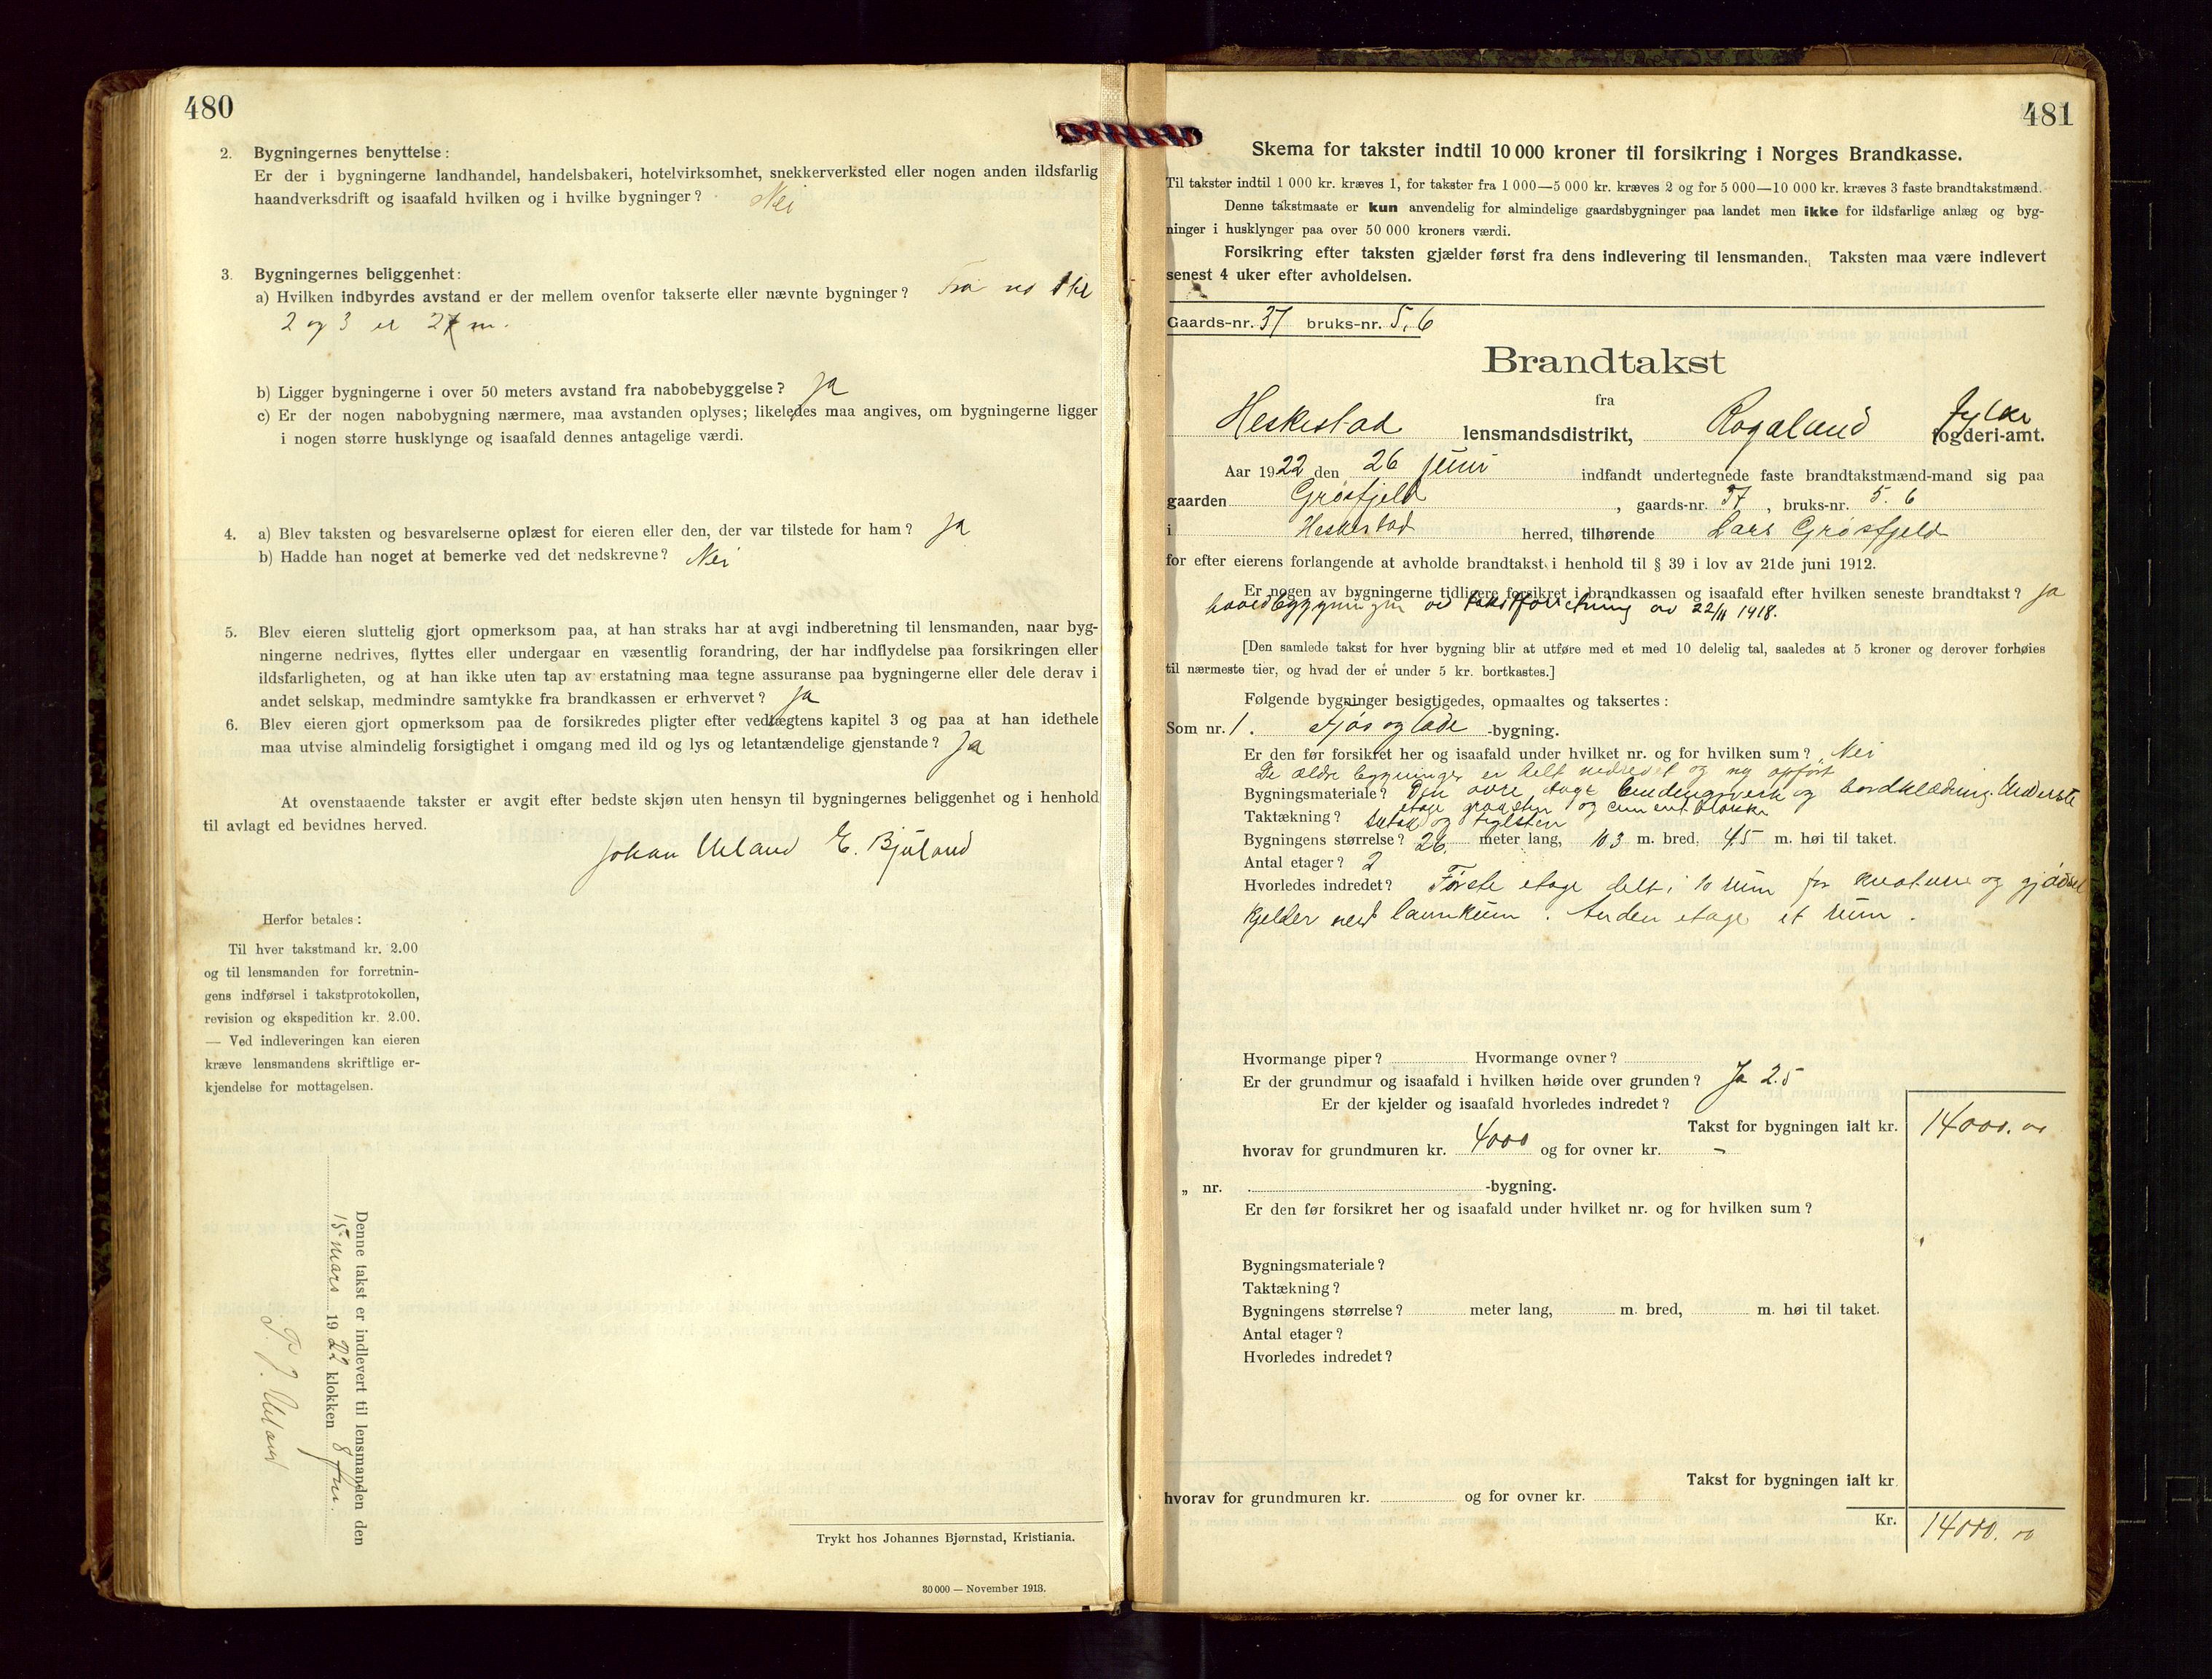 480
2. Bygningernes benyttelse:
Er der i bygningerne landhandel, handelsbakeri, hotelvirksomhet, snekkerverksted eller nogen anden ildsfarlig
haandverksdrift og isaafald hvilken og i hvilke bygninger? Nei
3. Bygningernes beliggenhet:
a) Hvilken indbyrdes avstand er der mellem ovenfor takserte eller nævnte bygninger? Fra no 1 til
2 og 3 er 27 m.
b) Ligger bygningerne i over 50 meters avstand fra nabobebyggelse? Ja
c) Er der nogen nabobygning nærmere, maa avstanden oplyses; likeledes maa angives, om bygningerne ligger
i nogen større husklynge og isaafald dennes antagelige værdi.
4. a) Blev taksten og besvarelserne oplæst for eieren eller den, der var tilstede for ham? Ja
b) Hadde han noget at bemerke ved det nedskrevne? Nei
5. Blev eieren sluttelig gjort opmerksom paa, at han straks har at avgi indberetning til lensmanden, naar byg-
ningerne nedrives, flyttes eller undergaar en væsentlig forandring, der har indflydelse paa forsikringen eller
ildsfarligheten, og at han ikke uten tap av erstatning maa tegne assuranse paa bygningerne eller dele derav i
andet selskap, medmindre samtykke fra brandkassen er erhvervet? Ja
6. Blev eieren gjort opmerksom paa de forsikredes pligter efter vedtægtens kapitel 3 og paa at han idethele
maa utvise almindelig forsigtighet i omgang med ild og lys og letantændelige gjenstande? Ja
At ovenstaaende takster er avgit efter bedste skjøn uten hensyn til bygningernes beliggenhet og i henhold
til avlagt ed bevidnes herved.
Johan Ueland E. Bjuland
Herfor betales:
Til hver takstmand kr. 2.00
og til lensmanden for forretnin-
gens indførsel i takstprotokollen,
revision og ekspedition kr. 2.00.
— Ved indleveringen kan eieren
kræve lensmandens skriftlige er-
kjendelse for mottagelsen.
Denne takst er indlevert til lensmanden den
15 mars 1922 klokken 8 fm.
Ueland
Trykt hos Johannes Bjørnstad, Kristiania.
30 000 — November 1913.
481
Skema for takster indtil 10 000 kroner til forsikring i Norges Brandkasse.
Til takster indtil 1 000 kr. kræves 1, for takster fra 1 000—5 000 kr. kræves 2 og for 5 000—10 000 kr. kræves 3 faste brandtakstmænd.
Denne takstmaate er kun anvendelig for almindelige gaardsbygninger paa landet men ikke for ildsfarlige anlæg og byg-
ninger i husklynger paa over 50 000 kroners værdi.
Forsikring efter taksten gjælder først fra dens indlevering til lensmanden. Taksten maa være indlevert
senest 4 uker efter avholdelsen.
Gaards-nr. 37 bruks-nr. 5,6
Brandtakst
fra
Heskestad lensmandsdistrikt, Rogaland fylke fogderi-amt.
Aar 1922 den 26 juni indfandt undertegnede faste brandtakstmænd-mand sig paa
gaarden Grøsfjeld, gaards-nr. 37, bruks-nr. 5.6
i Heskestad herred, tilhørende Lars Grøsfjeld
for efter eierens forlangende at avholde brandtakst i henhold til § 39 i lov av 21de juni 1912.
Er nogen av bygningerne tidligere forsikret i brandkassen og isaafald efter hvilken seneste brandtakst? Ja
hovedbygningen ved takstforretning av 22/11 1918.
[Den samlede takst for hver bygning blir at utføre med et med 10 delelig tal, saaledes at 5 kroner og derover forhøies
til nærmeste tier, og hvad der er under 5 kr. bortkastes.]
Følgende bygninger besigtigedes, opmaaltes og taksertes:
Som nr. 1. Fjøs og lade -bygning.
Er den før forsikret her og isaafald under hvilket nr. og for hvilken sum? Nei
De ældre bygninger er helt nedrevet og ny opført
Bygningsmateriale? Den øvre etage bindingsverk og bordklædning. Underste
etage graasten og cementblokke
Taktækning? og teglsten
Bygningens størrelse? 26. meter lang, 10.3 m. bred, 4.5 m. høi til taket.
Antal etager? 2
Hvorledes indredet? Første etage delt i 10 rum for kreature og gjødsel
kjelder med lannkum. Anden etage et rum.
Hvormange piper? Hvormange ovner?
Er der grundmur og isaafald i hvilken høide over grunden? Ja 2.5
Er der kjelder og isaafald hvorledes indredet?
Takst for bygningen ialt kr. 14000.00
hvorav for grundmuren kr. 4000 og for ovner kr. -
„ nr. -bygning.
Er den før forsikret her og isaafald under hvilket nr. og for hvilken sum?
Bygningsmateriale?
Taktækning?
Bygningens størrelse? meter lang, m. bred, m. høi til taket.
Antal etager?
Hvorledes indredet?
Takst for bygningen ialt kr.
hvorav for grundmuren kr. og for ovner kr.
Kr. 14000.00